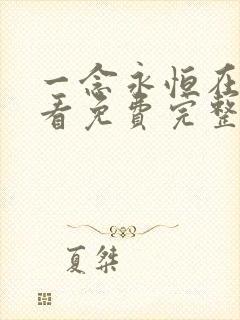 一念永恒在
看免费完整
夏桀